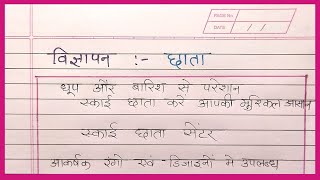 PAGE No.
DATE
विज्ञापन :- छाता
धूप और बारिश से परेशान
स्काई छाता करें आपकी मुश्किल आसान
स्काई छाता सेंटर
आकर्षक रंगो एवं डिजाइनों मे उपलब्ध